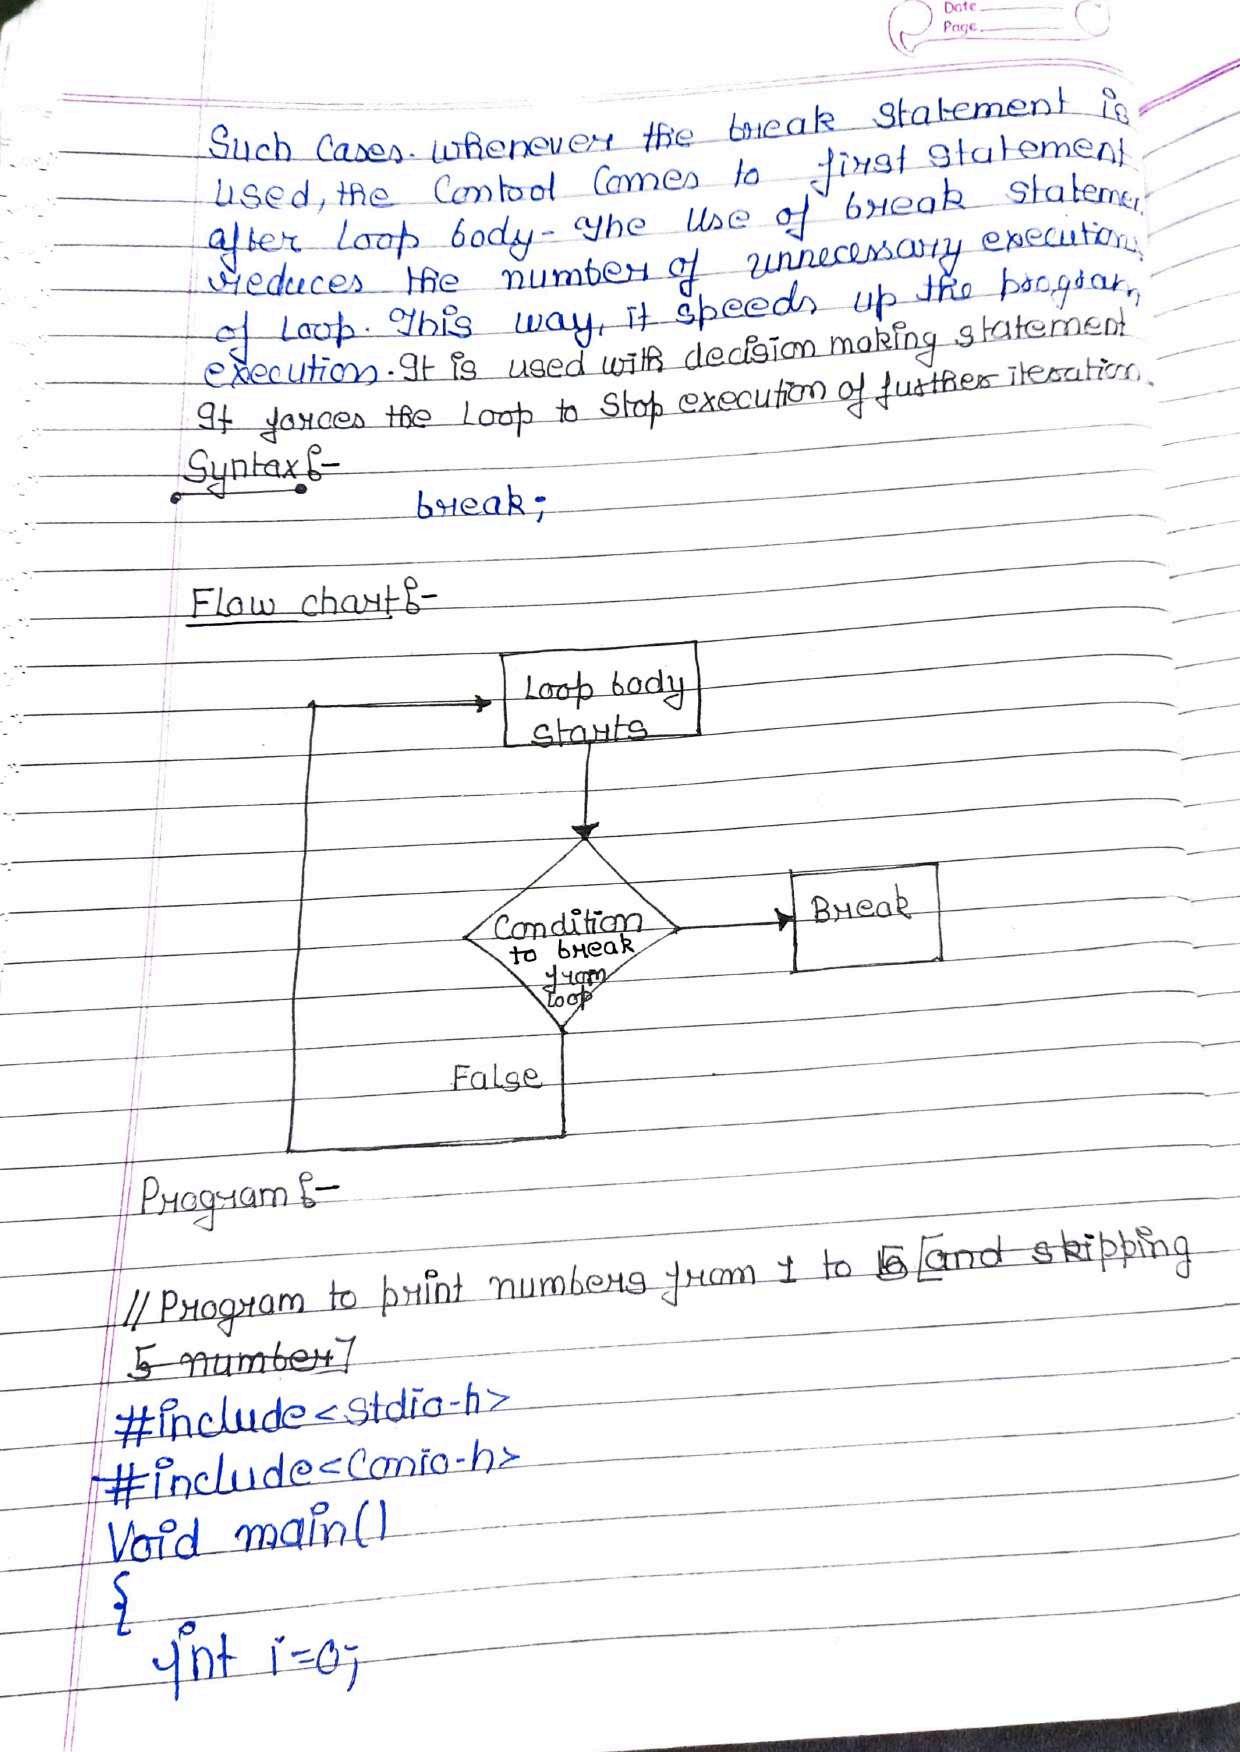 Date
Page
Such Cases. whenever the break statement is
used, the Contool Comes to first statement
after Loop body- The use of break stateme
reduces the number of unnecessary execution
of Loop. This way, it speeds up the program
execution. It is used with decision making statement
It forces the Loop to Stop execution of further iteration.
Syntax :-
break;
Flow chart :-
Loop body
starts
Condition
to break
from
loop
Break
False
Program :-
// Program to print numbers from 1 to [and skipping
5 number]
#include<stdio.h>
#include<Conio.h>
Void main()
{
int i=0;